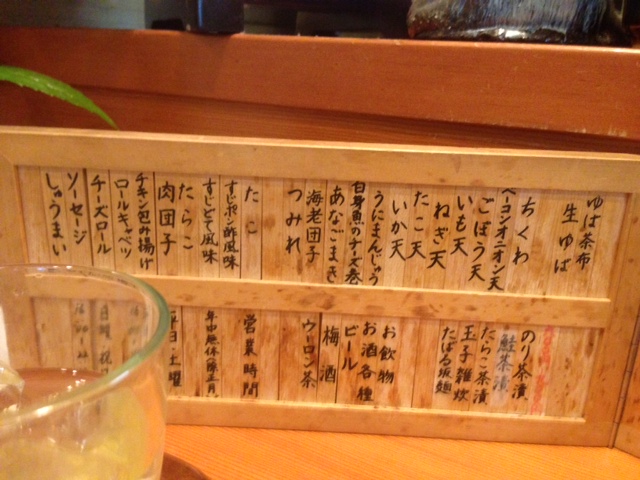 ゆば茶布
生ゆば
ちくわ
ベーコンオニオン天
ごぼう天
いも天
ねぎ天
たこ天
いか天
うにまんじゅう
白身魚のチーズ巻
あなごまき
海老団子
つみれ
たこ
すじポン酢風味
すじどて風味
たらこ
肉団子
チキン包み揚げ
ロールキャベツ
チーズロール
ソーセージ
しゅうまい
のり茶漬
鮭茶漬
たらこ茶漬
玉子雑炊
お飲物
お酒各種
ビール
梅酒
ウーロン茶
営業時間
平日・土曜